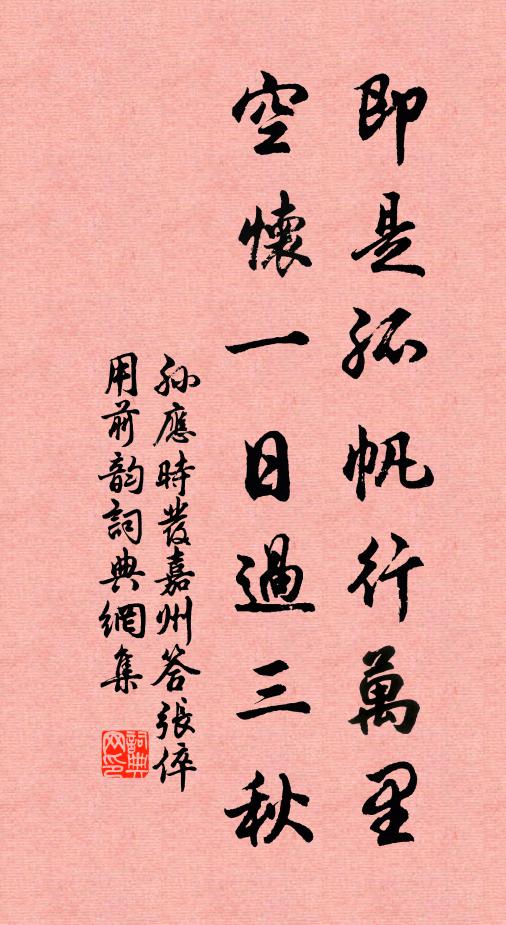 即是孤帆行萬里
空懷一日過三秋
孫應時發嘉州答張倅
用前韵詞典網集
詞典網印